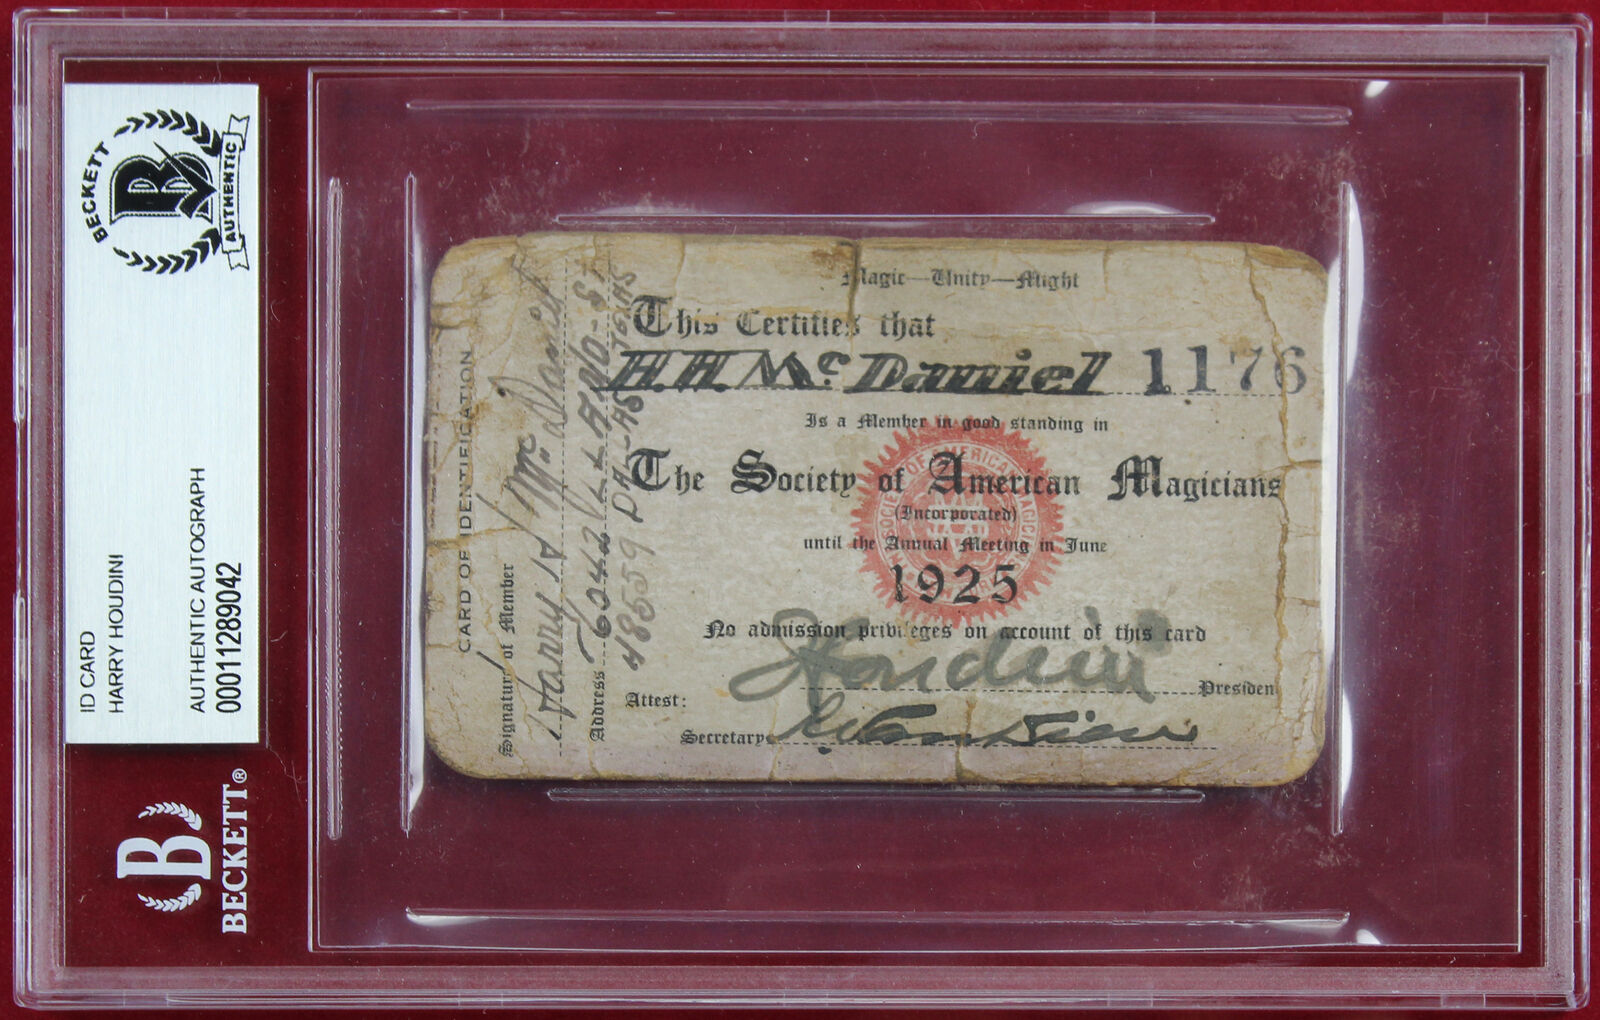 BECKETT
B
AUTHENTIC
ID CARD
HARRY HOUDINI
AUTHENTIC AUTOGRAPH
00011289042
B
BECKETT®
CARD OF IDENTIFICATION
Signature of Member
Harry H Mc Daniel
Address
48559 DALLAS TEXAS
Magic—Unity—Might
This Certifies that
H.H. Mc Daniel 1176
Is a Member in good standing in
The Society of American Magicians
(Incorporated)
until the Annual Meeting in June
1925
No admission privileges on account of this card
Houdini
Presiden
Attest:
Secretary
SOCIETY OF AMERICAN MAGICIANS